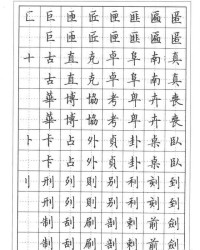 匚 巨 匣 匠 匣 匪 匾 匿
巨 匣 匠 匣 匪 匾 匿
十 古 直 克 卓 阜 南 真
古 直 克 卓 阜 南 真
華 博 協 考 卑 卉 喪
華 博 協 考 卑 卉 喪
卜 卡 占 外 貞 卦 桌 臥
卡 占 外 貞 卦 桌 臥
刂 刑 列 則 别 利 刻 到
刑 列 則 别 利 刻 到
制 刮 刷 剖 剌 前 劍
制 刮 刷 剖 剌 前 劍